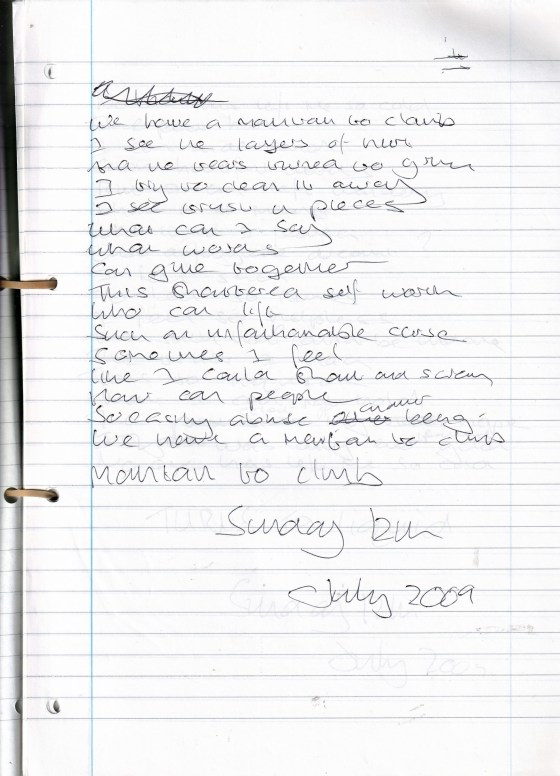 We have a mountain to climb
I see the layers of hurt
And the tears turned to grin
I try to clear it away
I see trust in pieces
What can I say
What words
Can glue together
This shattered self worth
Who can lift
Such an unfathomable curse
Sometimes I feel
like I could shout and scream
How can people
So easily abuse another being.
We have a mountain to climb
Mountain to climb
Sunday
July 2009